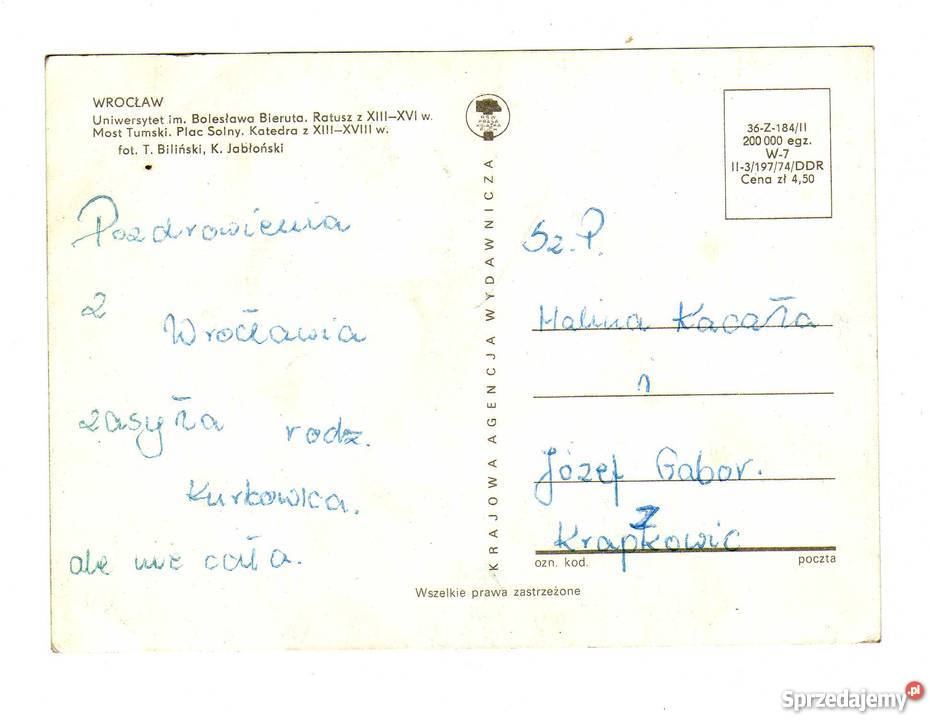 WROCŁAW
Uniwersytet im. Bolesława Bieruta. Ratusz z XIII–XVI w.
Most Tumski. Plac Solny. Katedra z XIII–XVIII w.
fot. T. Biliński, K. Jabłoński
Pozdrowienia
z
Wrocławia
zasyła rodz.
Kurkowica.
ale nie cała.
RSW
PRASA
KSIĄŻKA
RUCH
KRAJOWA AGENCJA WYDAWNICZA
36-Z-184/II
200 000 egz.
W-7
II-3/197/74/DDR
Cena zł 4,50
Sz. P.
Halina Kacała
i
Józef Gabor.
z
Krapkowic
ozn. kod. poczta
Wszelkie prawa zastrzeżone
Sprzedajemy.pl